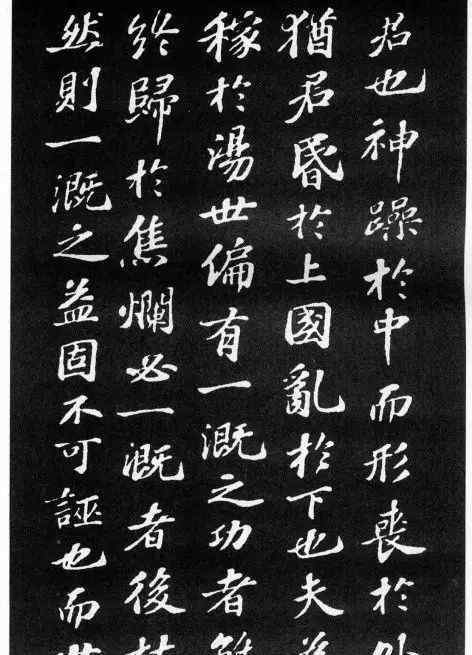 君也神躁於中而形喪於外
猶君昬於上國亂於下也夫
稼於湯世偏有一溉之功者
終歸於焦爛必一溉者後
然則一溉之益固不可誣也而